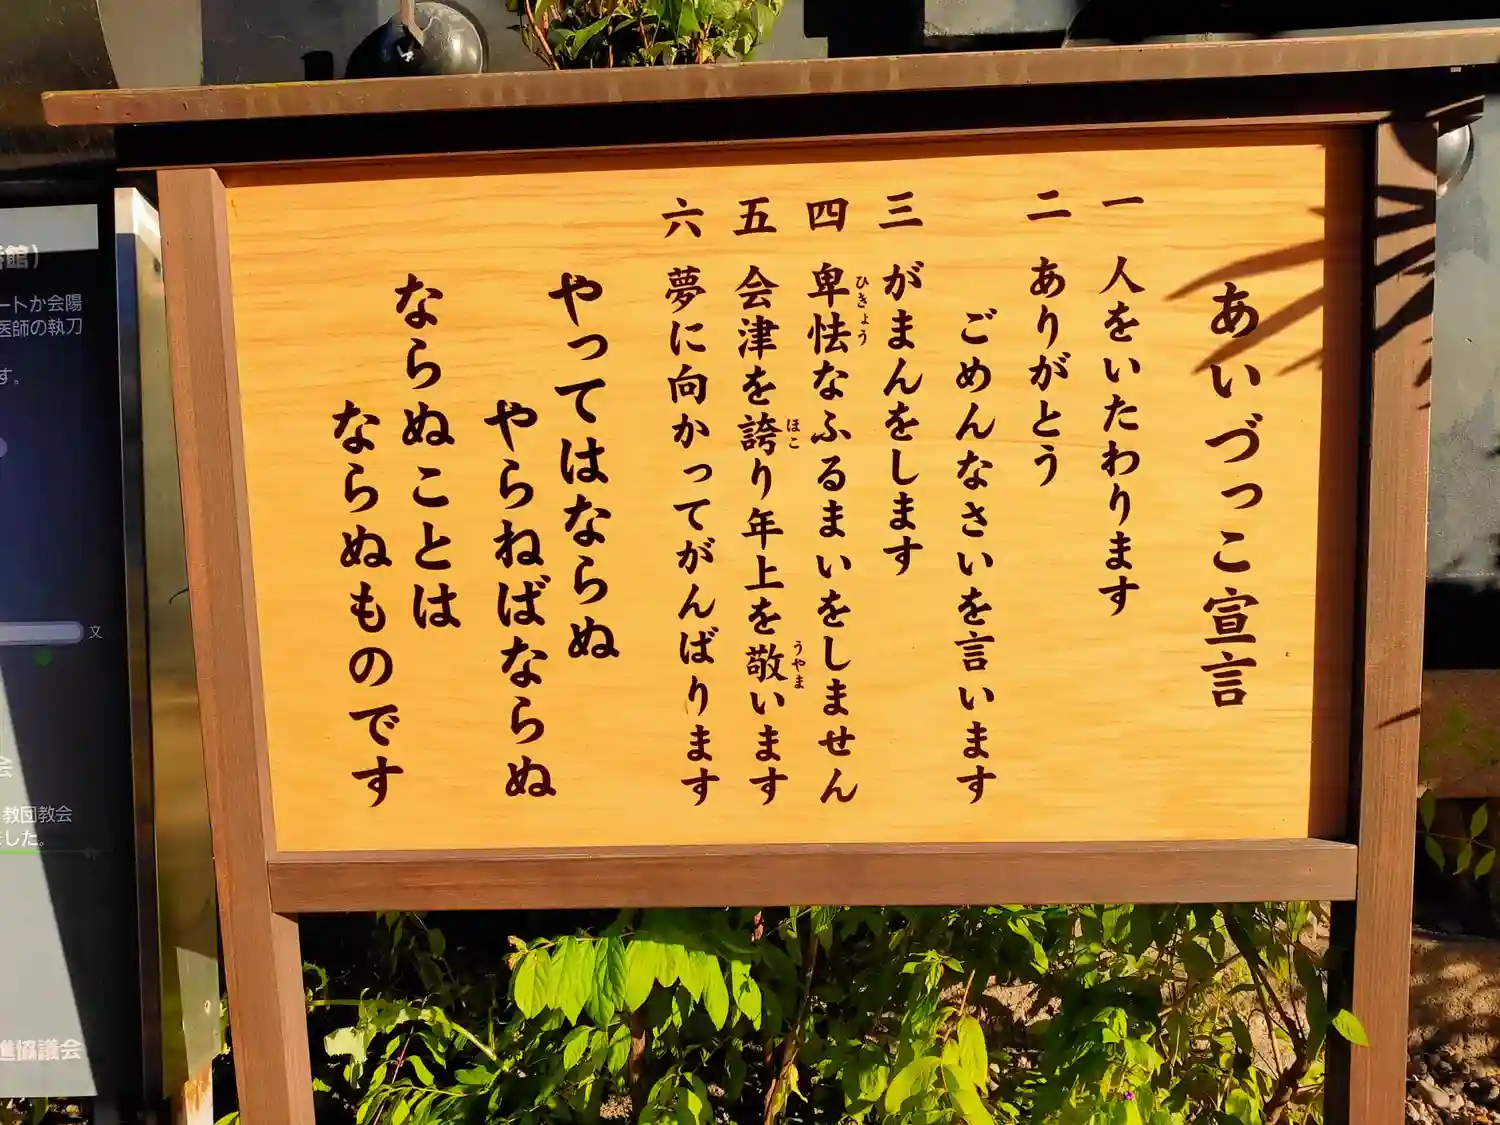 あいづっこ宣言
一 人をいたわります
二 ありがとう
ごめんなさいを言います
三 がまんをします
四 卑怯なふるまいをしません
ひきょう
五 会津を誇り年上を敬います
ほこ
うやま
六 夢に向かってがんばります
やってはならぬ
やらねばならぬ
ならぬことは
ならぬものです
館)
ートか会陽
医師の執刀
す。
文
会
教団教会
した。
進協議会